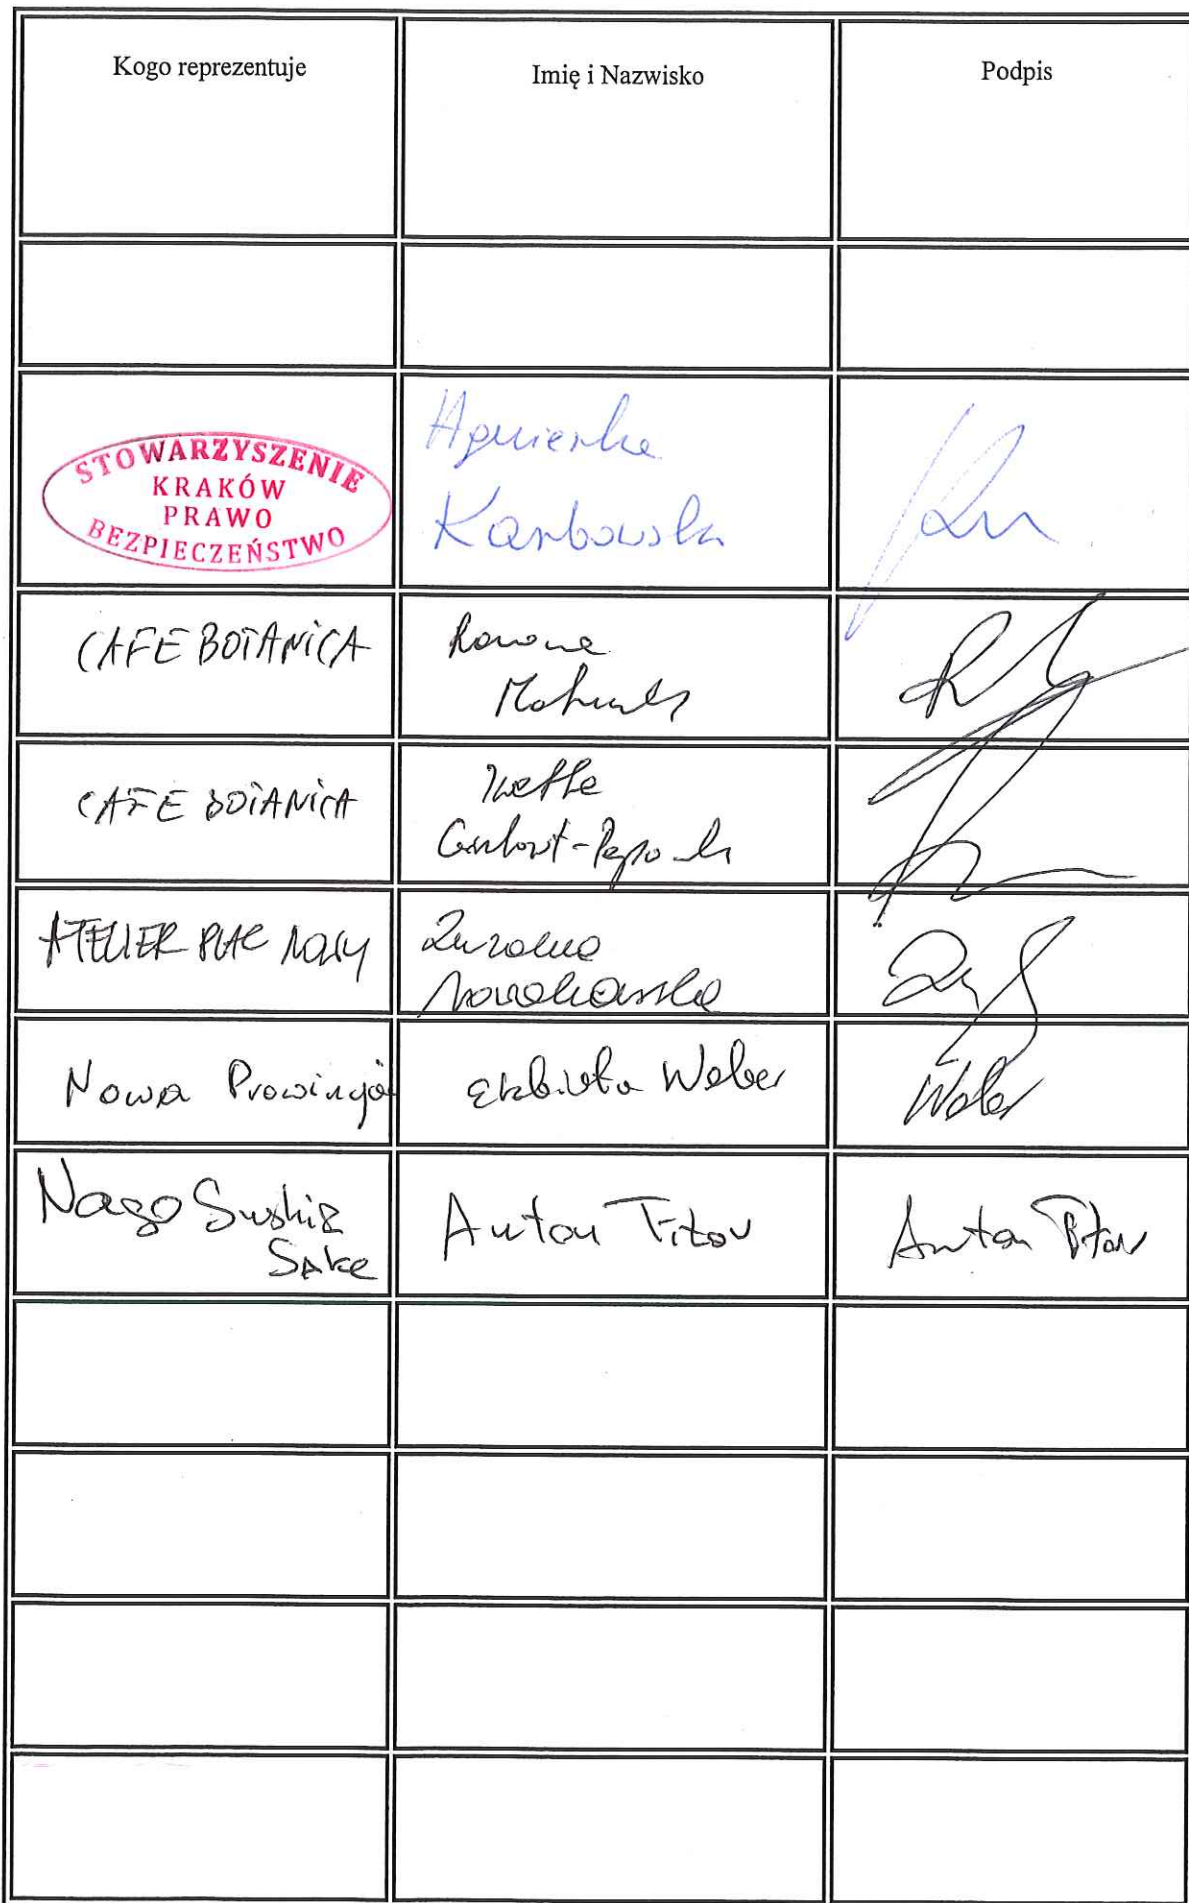 Kogo reprezentuje
Imię i Nazwisko
Podpis
STOWARZYSZENIE
KRAKÓW
PRAWO
BEZPIECZEŃSTWO
Agnieszka
Karbowska
CAFE BOTANICA
CAFE BOTANICA
Iwetta
ATELIER PLAC NOWY
Zuzanna
Nowakowska
Nowa Prowincja
Elżbieta Weber
Weber
Nago Sushi &
Sake
Anton Titov
Anton Titov